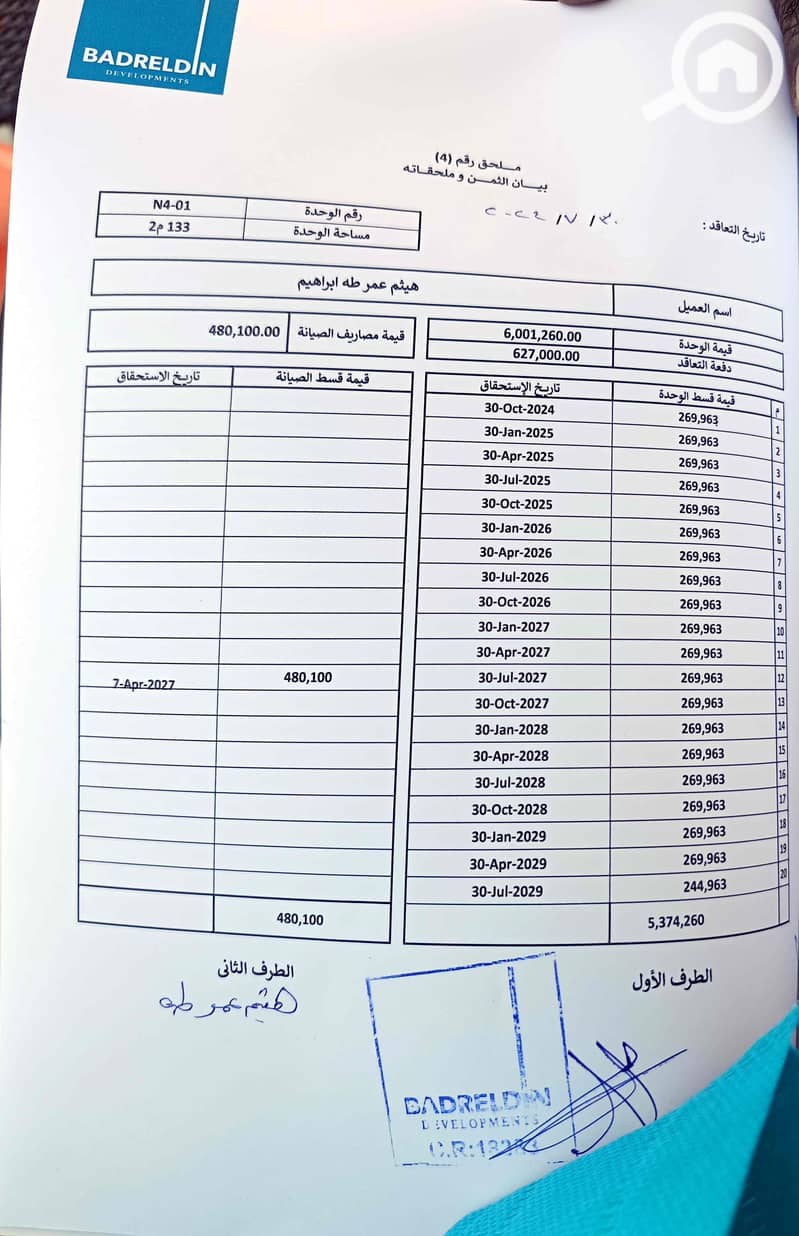 BADRELDIN
DEVELOPMENTS
ملحق رقم (4)
بيان الثمن و ملحقاته
تاريخ التعاقد : ٣٠ / ٧ / ٢٠٢٤
رقم الوحدة N4-01
مساحة الوحدة 133 م2
اسم العميل هيثم عمر طه ابراهيم
قيمة الوحدة 6,001,260.00
دفعة التعاقد 627,000.00
قيمة مصاريف الصيانة 480,100.00
م قيمة قسط الوحدة تاريخ الإستحقاق قيمة قسط الصيانة تاريخ الاستحقاق
1 269,963 30-Oct-2024
2 269,963 30-Jan-2025
3 269,963 30-Apr-2025
4 269,963 30-Jul-2025
5 269,963 30-Oct-2025
6 269,963 30-Jan-2026
7 269,963 30-Apr-2026
8 269,963 30-Jul-2026
9 269,963 30-Oct-2026
10 269,963 30-Jan-2027
11 269,963 30-Apr-2027
12 269,963 30-Jul-2027 480,100 7-Apr-2027
13 269,963 30-Oct-2027
14 269,963 30-Jan-2028
15 269,963 30-Apr-2028
16 269,963 30-Jul-2028
17 269,963 30-Oct-2028
18 269,963 30-Jan-2029
19 269,963 30-Apr-2029
20 244,963 30-Jul-2029
5,374,260 480,100
الطرف الأول
الطرف الثانى
هيثم عمر طه
BADRELDIN
DEVELOPMENTS